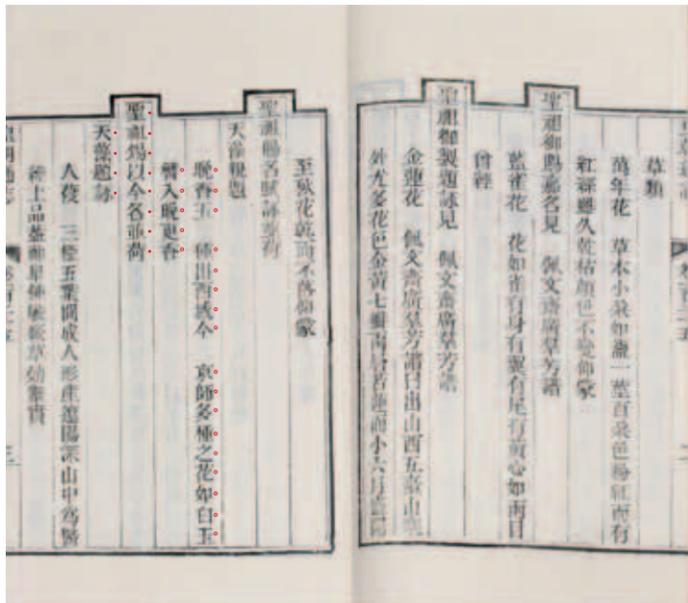 草類
萬年花 草本小朵如盞一莖百朵色粉紅而有
紅蕤雖久乾枯顏色不變仰蒙
聖祖御賜嘉名見 佩文齋廣羣芳譜
藍雀花 花如雀有身有翼有尾有黃心如兩目
曾經
聖祖御製題詠見 佩文齋廣羣芳譜
金蓮花 佩文齋廣羣芳譜曰出山西五臺山塞
外尤多花色金黃七瓣兩層若蓮而小六月盛開
至秋花乾而不落仰蒙
聖祖賜名賦詠並荷
天藻親題
晚香玉 種出西域今 京師多種之花如白玉
入晚更香
聖祖錫以今名並荷
天藻題詠
人葠 三椏五葉閒成人形產遼陽深山中為醫
上品蓋